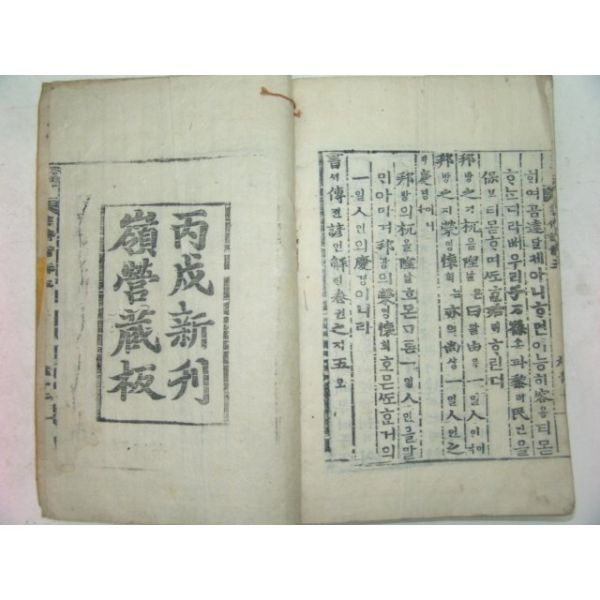 ᄒᆞ여곰達달케아니ᄒᆞ면이능히容용티몯
ᄒᆞᄂᆞᆫ디라ᄡᅥ우리子ᄌᆞ孫손과黎려民민을
保보티몯ᄒᆞ리니ᄯᅩᄒᆞᆫ殆ᄐᆡᄒᆞ린뎌
邦방之지杌올隉날은曰왈由유一일人인이오
邦방之지榮영懷회ᄂᆞᆫ亦역尙샹一일人인之
지慶경이니라
邦방의杌올隉날호ᄆᆞᆫᄀᆞᆯ온一일人인을말
ᄆᆡ아미며邦방의榮영懷회호ᄆᆞᆫᄯᅩᄒᆞᆫ거의
一일人인의慶경이니라
書셔傳젼諺언解ᄒᆡ卷권之지五오
丙戌新刊
嶺營藏板